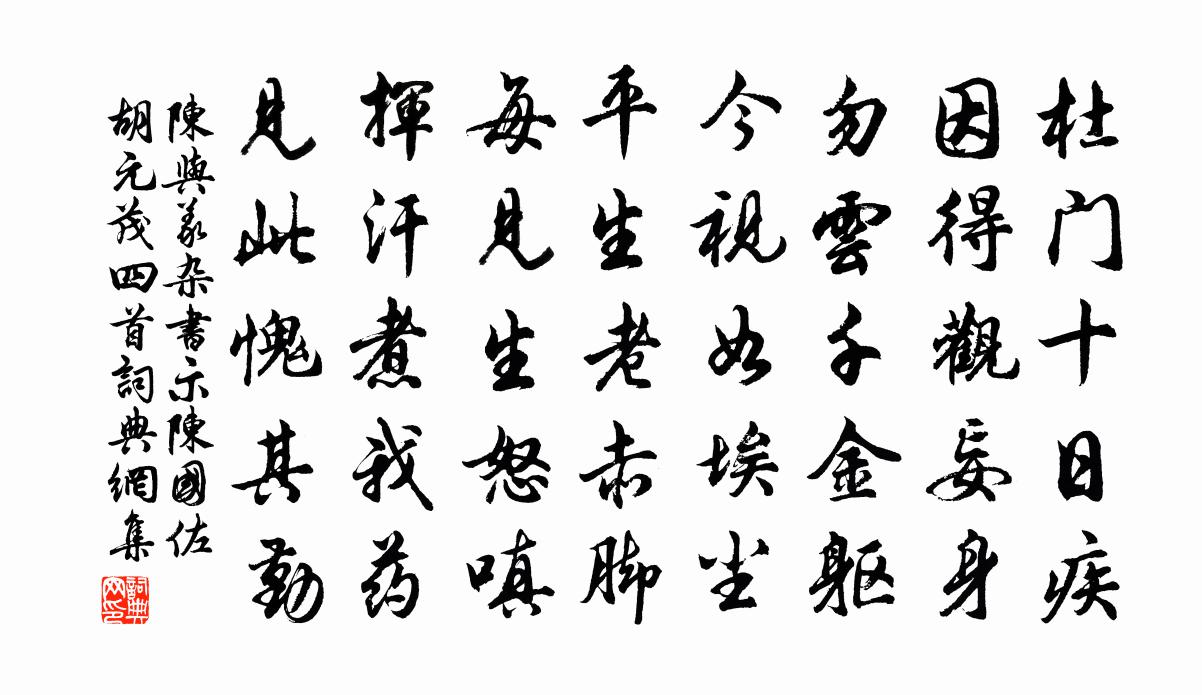 杜门十日疾
因得觀妄身
勿雲千金躯
今視如埃尘
平生老赤脚
每見生怒嗔
揮汗煮我药
見此愧其勤
陳與義杂書示陳國佐
胡元茂四首詞典網集
詞典网印